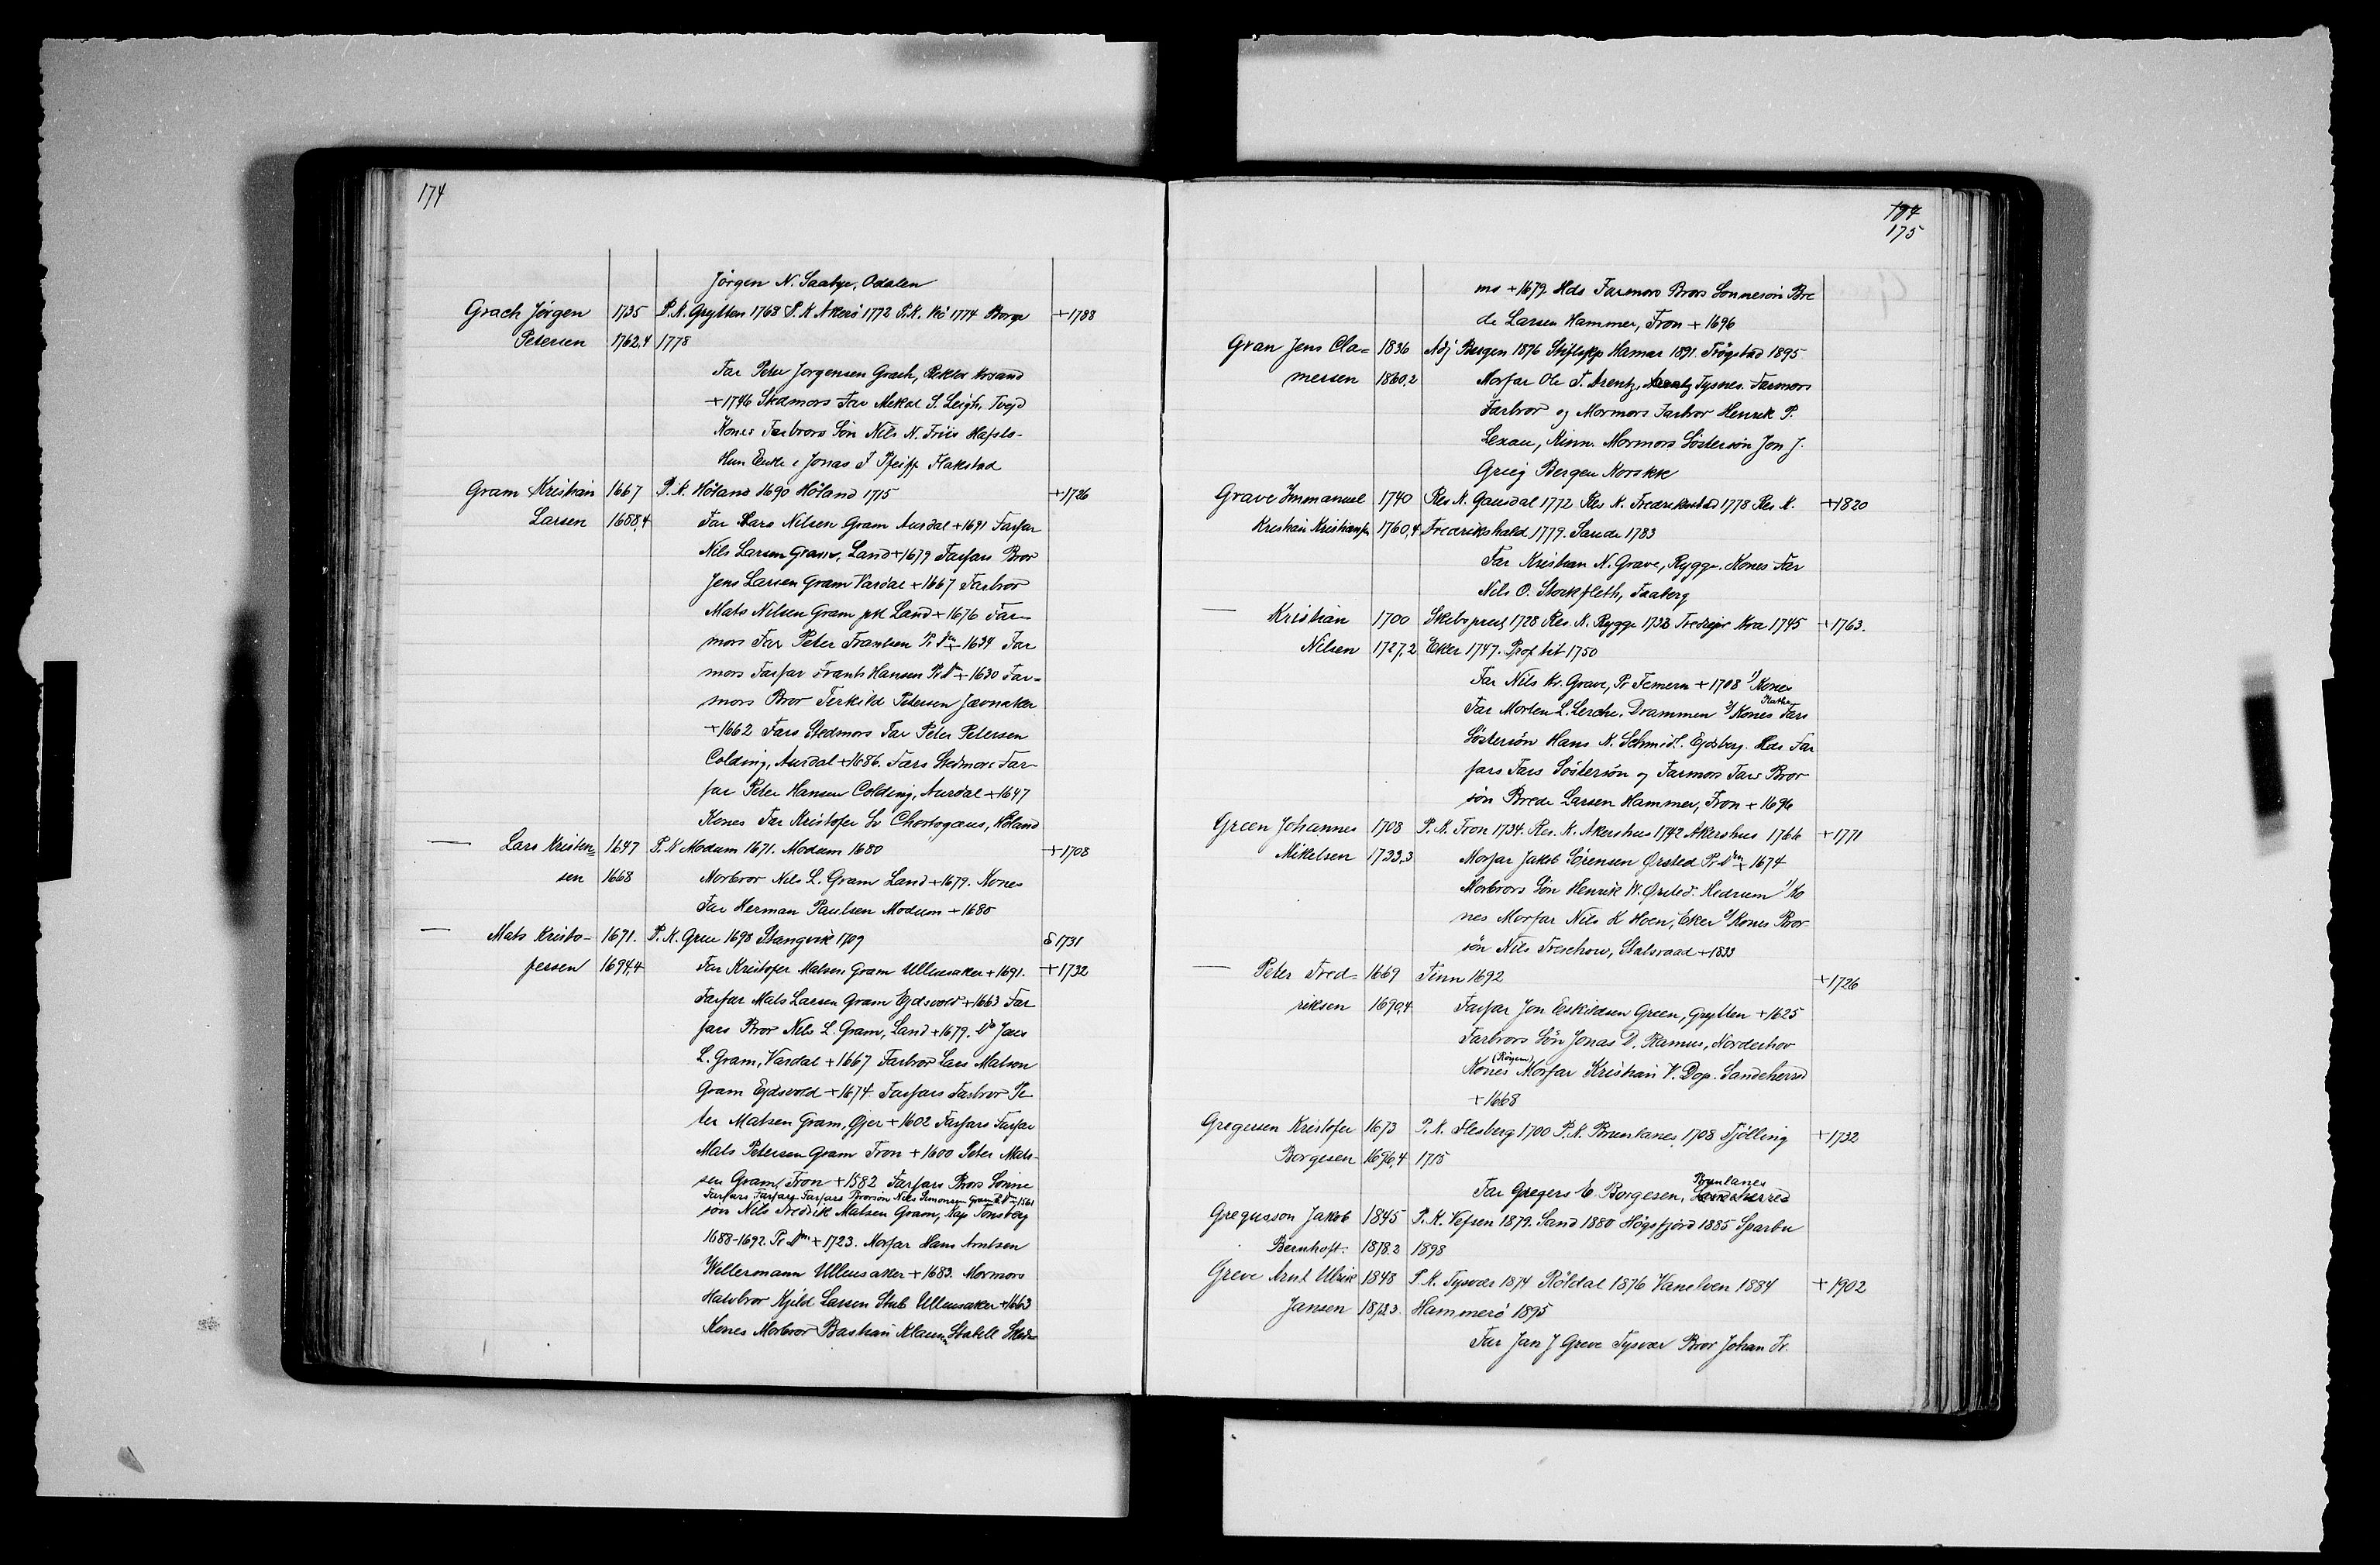 174
Jörgen N. Saabye, Odalen
Grach Jörgen 1735 P. K. Grytten 1763 S. K Akerö 1772 P.K. 1774 Borge +1788
Petersen 1762,4 1778
Far Peter Jorgensen Grach, Rektor Krsand
+1746 Stedmors Far Mikal S. Leigh, Tvejd
Kones Farbrors Sön Nils N. Friis Hafslo-
Hun Enke e Jonas F Pfeiff Flakstad
Gram Kristian 1667 P. K. Höland 1690 Höland 1715 +1726
Larsen 1688,4 Far Lars Nilsen Gram Aurdal +1691 Farfar
Nils Larsen Gram, Land +1679 Farfars Bror
Jens Larsen Gram Vardal +1667 Farbror
Mats Nilsen Gram pk Land +1676 Far-
mors Far Peter Frantsen Pr Dm +1634 Far
mors Farfar Frants Hansen Pr Dm +1630 Far-
mors Bror Terkild Petersen Jævnaker
+1662 Fars Stedmors Far Peter Petersen
Colding, Aurdal +1686. Fars Stedmors Far-
far Peter Hansen Colding, Aurdal +1647
Kones Far Kristofer Chortogaus, Höland
— Lars Kristen= 1647 P. K Modum 1671. Modum 1680 +1708
sen 1668 Morbror Nils L. Gram Land +1679. Kones
Far Herman Paulsen Modum +1680
— Mats Kristo- 1671. P. K. Grue 1698 Stangvik 1709 S 1731
fersen 1694,4 Far Kristofer Matsen Gram Ullensaker +1691. +1732
Farfar Mats Larsen Gram Ejdsvold +1663 Far
fars Bror Nils L. Gram, Land +1679. Do Jens
L. Gram, Vardal +1667 Farbror Lars Matsen
Gram Ejdsvold +1674. Farfars Farbror Pe
ter Matsen Gram, Öjer +1602 Farfars Farfar
Mats Petersen Gram Fron +1600 Peter Mats-
sen Gram, Fron +1582 Farfars Brors Sönne
Farfars Farfars Farfars Brorsön Nils Simonsen Gram Pr Dm +1561
sön Nils Fredrik Matsen Gram, Kap Tonsberg
1688-1692. Pr Dm +1723. Morfar Hans Arntsen
Wellermann Ullensaker +1683. Mormors
Halvbror Kjeld Larsen Stub Ullensaker +1663
Kones Morbror Bastian Klausen Stabell Skeds
174
175
mo +1679 Hds Farmors Brors Sonneson Bre
de Larsen Hammer, Fron +1696
Gran Jens Cla= 1836 Adj Bergen 1876 Stiftskp Hamar 1891. Trögstad 1895
messen 1860,2 Morfar Ole T. Arentz, Arentz Tysnes. Farmors
Farbror og Mormors Farbror Henrik P.
Lexau, Kinn. Mormors Söstersön Jon J.
Grieg Bergen Korskk
Grave Immanuel 1740 Res K. Gausdal 1772 Res K. Fredrikstad 1778 Res K. +1820
Kristian Kristiansen 1760,4 Fredrikshald 1779. Sande 1783
Far Kristian N. Grave, Rygge. Kones Far
Nils O. Stockfleth, Faaberg
— Kristian 1700 Skibsprest 1728 Res. K. Rygge 1732 Kra 1745 +1763.
Nilsen 1727,2 Eker 1747. Prof tit 1750
Far Nils Kr. Grave, Pr Femern +1708 1/ Kones
Far Morten L. Lerche, Drammen 2/ Kones Fars
Söstersön Hans N. Schmidt. Ejdsberg. Hds Far
fars Fars Söstersön og Farmors Fars Bror
sön Brede Larsen Hammer, Fron +1696
Green Johannes 1708 P. K. Fron 1734. Res. K. Akershus 1742 Akershus 1766 +1771
Mikelsen 1733,3 Morfar Jakob Sörensen Ørsted Pr. Dm +1674
Morbrors Sön Henrik W. Ørsted. Hedrum 1/ Ko
nes Morfar Nils K Hoen, Eker 2/ Kones Bror
sön Nils Treschow, Statsraad +1833
— Peter Fred= 1669 Tinn 1692 +1726
riksen 1690,4 Farfar Jon Eskildsen Green, Grytten +1625
Farbrors Sön Jonas D. Ramus, Norderhov
(Röyem)
Kones Morfar Kristian V. Dop. Sandeherred
+1668
Gregersen Kristofer 1673 P. K. Flesberg 1700 P. K. Brunlanes 1708 Tjölling +1732
Borgesen 1696,4 1715
Brunlanes
Far Gregers E. Borgesen, Sandeherred
Gregusson Jakob 1845 P. K. Vefsen 1879. Sand 1880 Högsfjord 1885 Sparbu
Bernhoft. 1878.2 1898
Greve Arnt Ulrik 1848 P. K. Tysvær 1874 Röldal 1876 Vanelven 1884 +1902
Jansen Hammerö 1895
Far Jan J Greve Tysvær Bror Johan Fr.